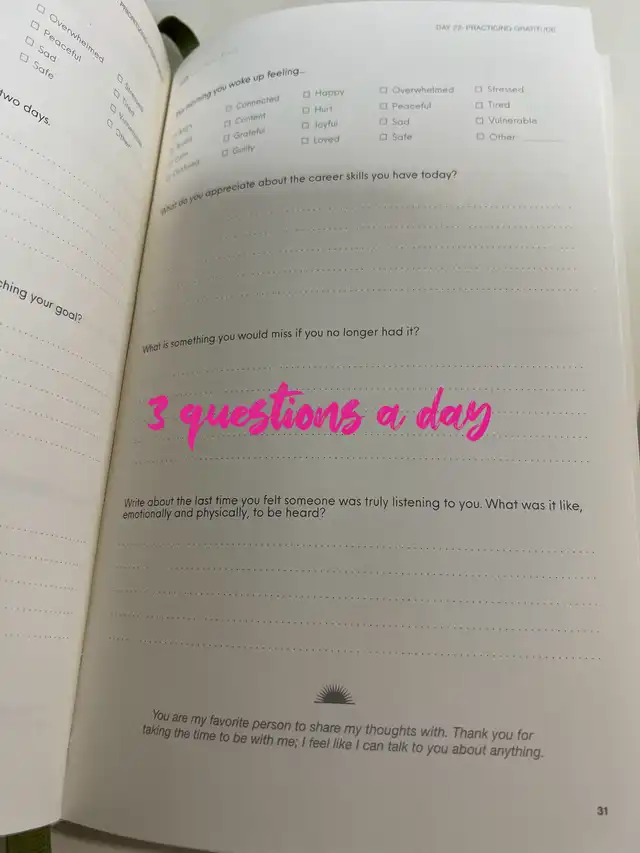 Overwhelmed
Peaceful
Sad
Safe
Stressed
Tired
Vulnerable
Other
two days.
ching your goal?
DAY 22: PRACTICING GRATITUDE
morning you woke up feeling...
Connected
Content
Grateful
Guilty
Happy
Hurt
Joyful
Loved
Overwhelmed
Peaceful
Sad
Safe
Stressed
Tired
Vulnerable
Other
What do you appreciate about the career skills you have today?
What is something you would miss if you no longer had it?
3 questions a day
Write about the last time you felt someone was truly listening to you. What was it like,
emotionally and physically, to be heard?
You are my favorite person to share my thoughts with. Thank you for
taking the time to be with me; I feel like I can talk to you about anything.
31